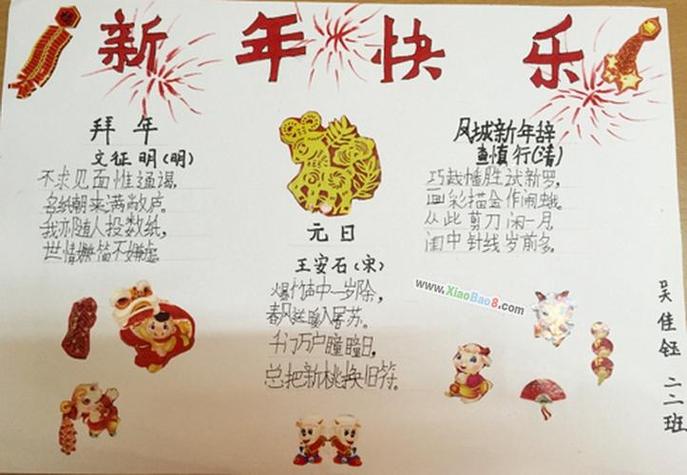 新年快乐
拜年
文征明(明)
不求见面惟通谒,
名纸朝来满敝庐。
我亦随人投数纸,
世情嫌简不嫌虚。
元日
王安石(宋)
爆竹声中一岁除,
春风送暖入屠苏。
千门万户瞳瞳日,
总把新桃换旧符。
凤城新年辞
查慎行(清)
巧裁幡胜试新罗,
画彩描金作闹蛾。
从此剪刀闲一月,
闺中针线岁前多。
www.XiaoBao8.com
吴佳钰 二二班